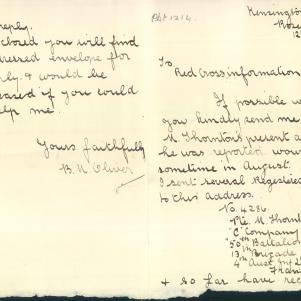 reply.
closed you will find
dressed envelope for
ply. & would be
eased if you could
elp me.
Yours faithfully
B. N. Oliver
Pbt 1214.
Kensington
Rose
12
To
Red Cross information
If possible w
you kindly send me
M. Thornton's present a
he was reported wou
sometime in August.
I sent several Registered
to this address.
No. 4286.
Pte. M. Thornt
"C" Company
50th Battalion
13th Brigade
4th Aust. Inf. D
Fran
& so far have rec